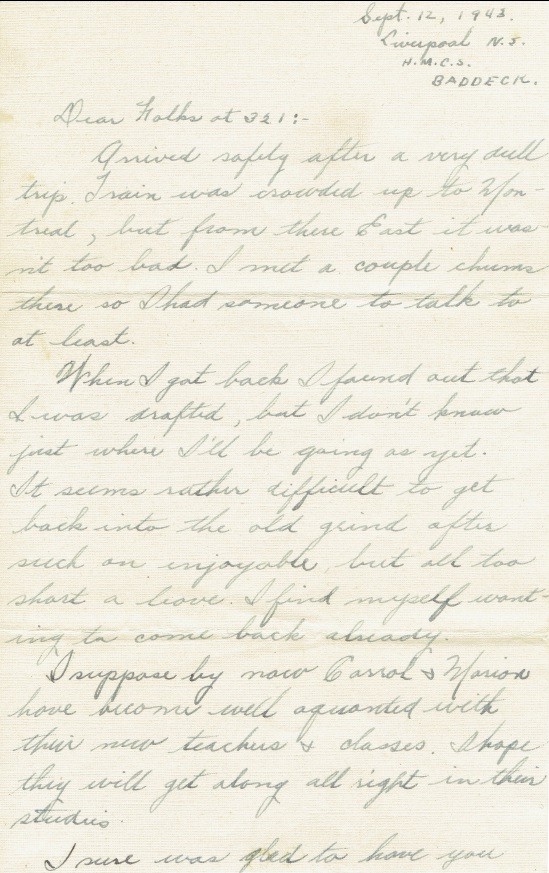 Sept. 12, 1943.
Liverpool N.S.
H.M.C.S.
BADDECK.
Dear Folks at 321:-
Arrived safely after a very dull
trip. Train was crowded up to Mon-
treal, but from there East it was-
n't too bad. I met a couple chums
there so I had someone to talk to
at least.
When I got back I found out that
I was drafted, but I don't know
just where I'll be going as yet.
It seems rather difficult to get
back into the old grind after
such an enjoyable, but all too
short a leave. I find myself want-
ing to come back already.
I suppose by now Carrol & Marion
have become well aquanted with
their new teachers & classes. I hope
they will get along all right in their
studies.
I sure was glad to have you